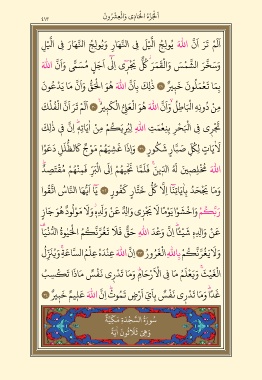 الجزء الحادي والعشرون
٤١٣
اَلَمْ تَرَ اَنَّ اللّٰهَ يُولِجُ الَّيْلَ فِى النَّهَارِ وَيُولِجُ النَّهَارَ فِى الَّيْلِ
وَسَخَّرَ الشَّمْسَ وَالْقَمَرَ كُلٌّ يَجْرٖى اِلٰٓى اَجَلٍ مُسَمًّى وَاَنَّ اللّٰهَ
بِمَا تَعْمَلُونَ خَبٖيرٌ ٢٩ ذٰلِكَ بِاَنَّ اللّٰهَ هُوَ الْحَقُّ وَاَنَّ مَا يَدْعُونَ
مِنْ دُونِهِ الْبَاطِلُ وَاَنَّ اللّٰهَ هُوَ الْعَلِىُّ الْكَبٖيرُ ٣٠ اَلَمْ تَرَ اَنَّ الْفُلْكَ
تَجْرٖى فِى الْبَحْرِ بِنِعْمَتِ اللّٰهِ لِيُرِيَكُمْ مِنْ اٰيَاتِهٖ اِنَّ فٖى ذٰلِكَ
لَاٰيَاتٍ لِكُلِّ صَبَّارٍ شَكُورٍ ٣١ وَاِذَا غَشِيَهُمْ مَوْجٌ كَالظُّلَلِ دَعَوُا
اللّٰهَ مُخْلِصٖينَ لَهُ الدّٖينَ فَلَمَّا نَجّٰيهُمْ اِلَى الْبَرِّ فَمِنْهُمْ مُقْتَصِدٌ
وَمَا يَجْحَدُ بِاٰيَاتِنَٓا اِلَّا كُلُّ خَتَّارٍ كَفُورٍ ٣٢ يَٓا اَيُّهَا النَّاسُ اتَّقُوا
رَبَّكُمْ وَاخْشَوْا يَوْمًا لَا يَجْزٖى وَالِدٌ عَنْ وَلَدِهٖ وَلَا مَوْلُودٌ هُوَ جَازٍ
عَنْ وَالِدِهٖ شَيْئًا اِنَّ وَعْدَ اللّٰهِ حَقٌّ فَلَا تَغُرَّنَّكُمُ الْحَيٰوةُ الدُّنْيَا
وَلَا يَغُرَّنَّكُمْ بِاللّٰهِ الْغَرُورُ ٣٣ اِنَّ اللّٰهَ عِنْدَهُ عِلْمُ السَّاعَةِ وَيُنَزِّلُ
الْغَيْثَ وَيَعْلَمُ مَا فِى الْاَرْحَامِ وَمَا تَدْرٖى نَفْسٌ مَاذَا تَكْسِبُ
غَدًا وَمَا تَدْرٖى نَفْسٌ بِاَىِّ اَرْضٍ تَمُوتُ اِنَّ اللّٰهَ عَلٖيمٌ خَبٖيرٌ ٣٤
سُورَةُ السَّجْدَةِ مَكِّيَّةٌ
وَهِىَ ثَلَاثُونَ اٰيَةً